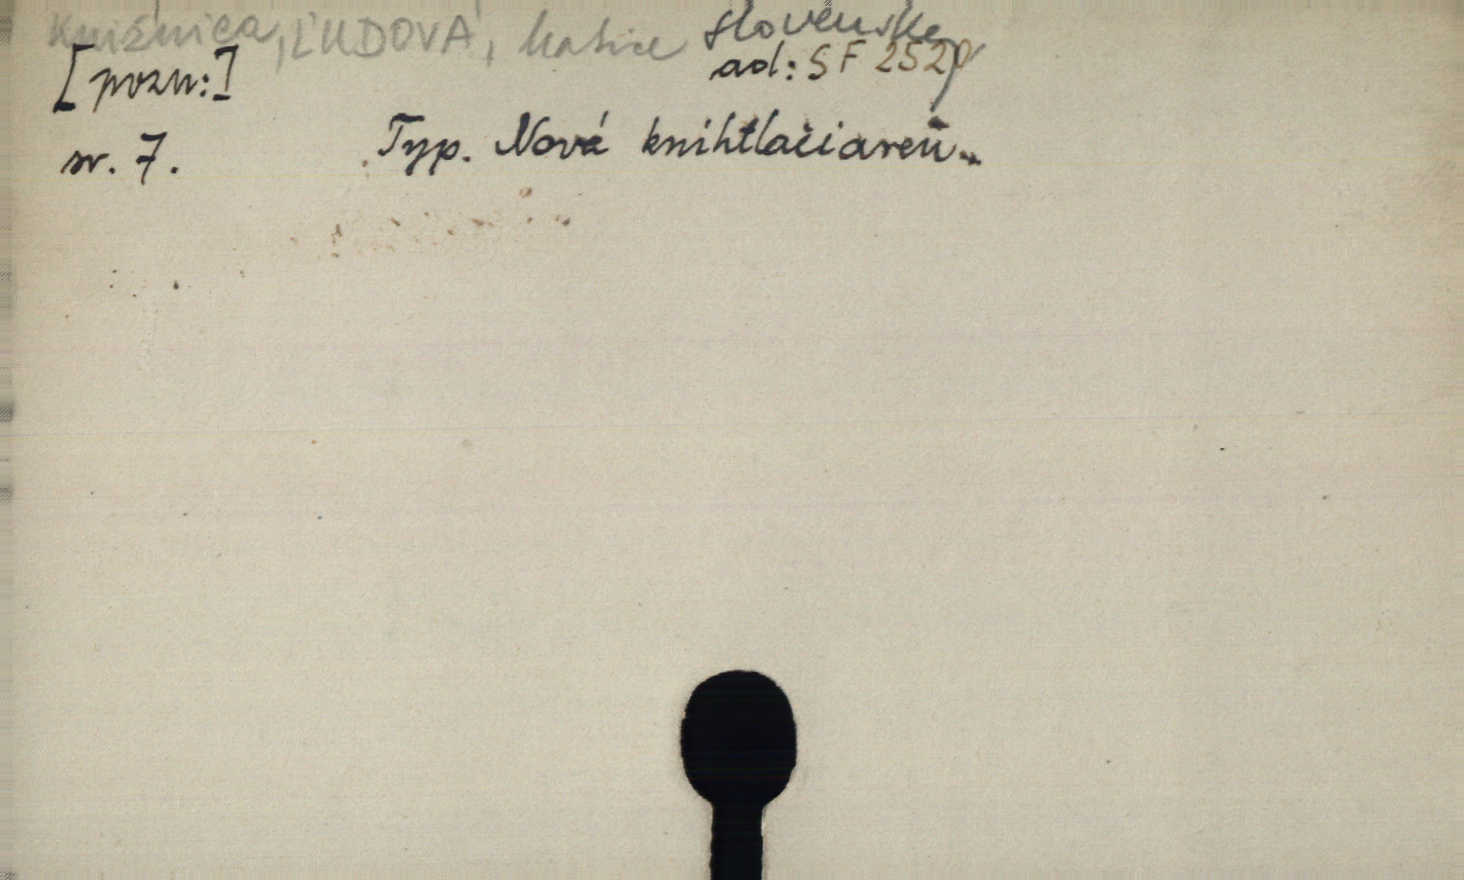 Knižnica, ĽUDOVÁ, Matice slovenskej
[pozn:] ad: SF 2520
sv. 7. Typ. Nová kníhtlačiareň.